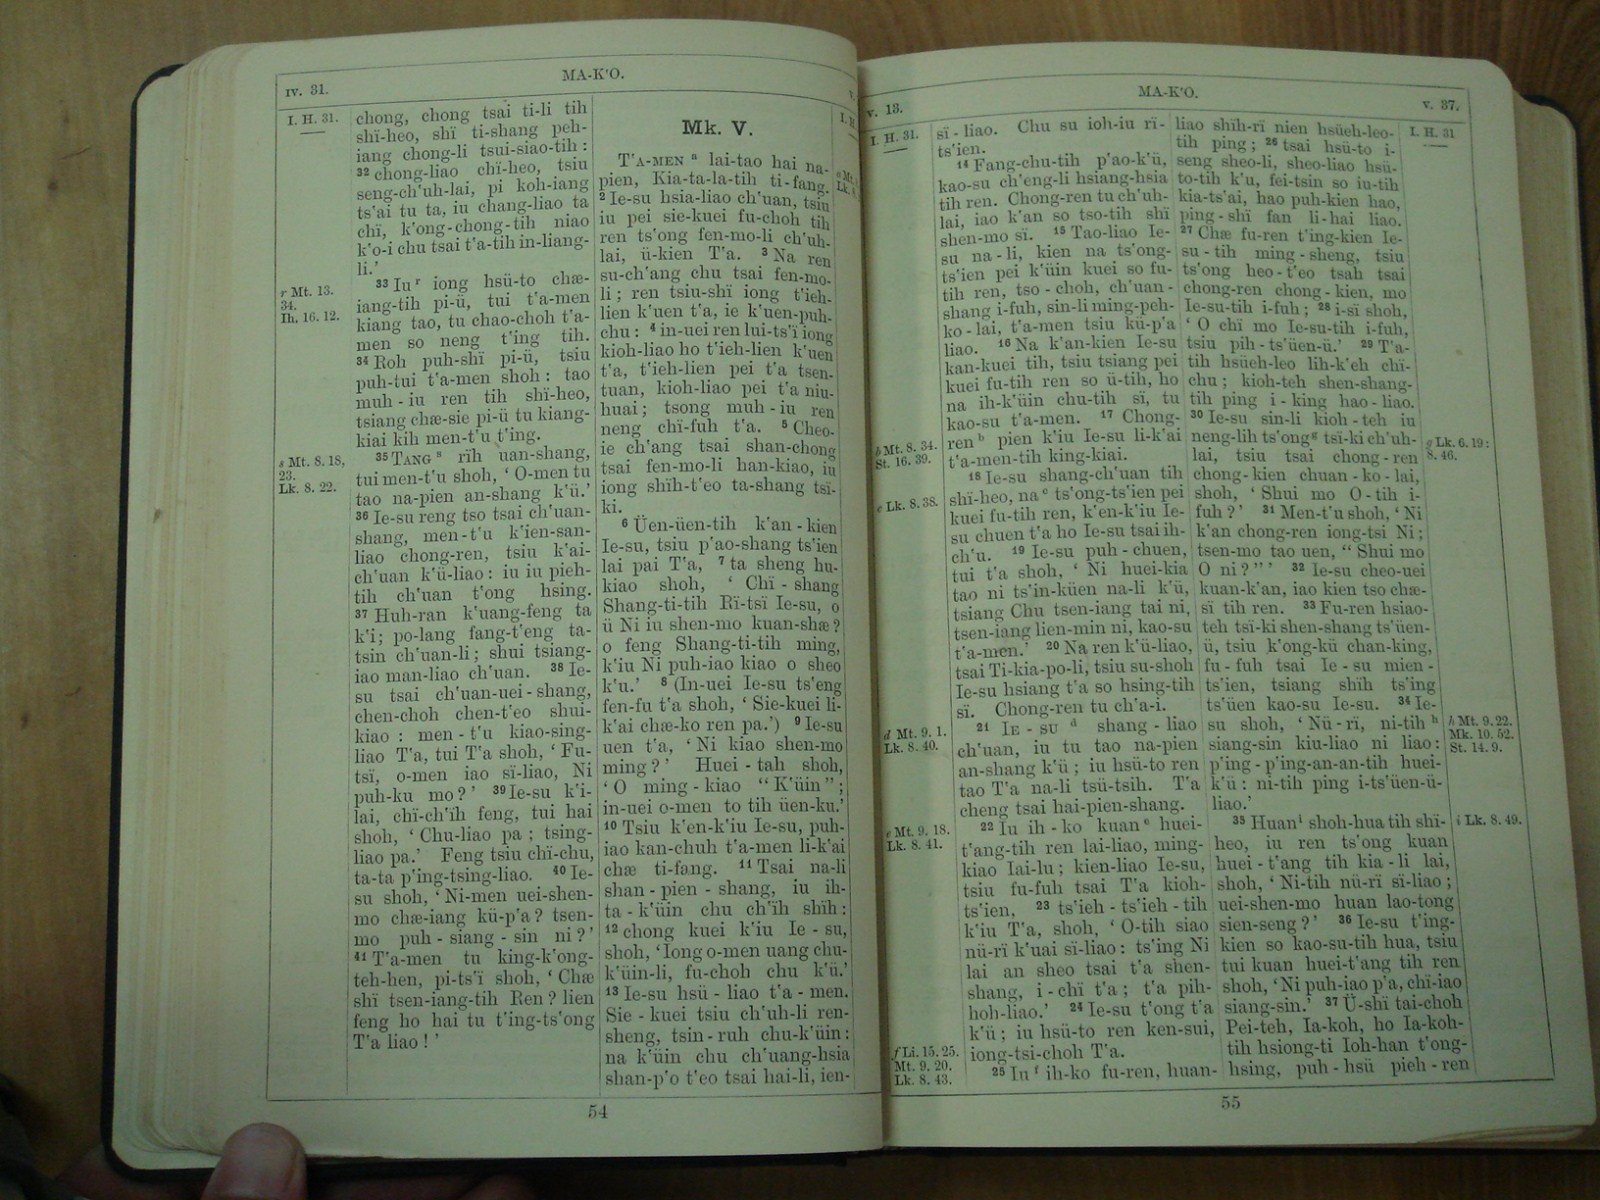 IV. 31.
MA-K'O.
I. H. 31.
chong, chong tsai ti-li tih
shï-heo, shï ti-shang peh-
iang chong-li tsui-siao-tih :
32 chong-liao chï-heo, tsiu
seng-ch'uh-lai, pi koh-iang
ts'ai tu ta, iu chang-liao ta
chï, k'ong-chong-tih niao
k'o-i chu tsai t'a-tih in-liang-
li.'
33 Iu r iong hsü-to chæ-
iang-tih pi-ü, tui t'a-men
kiang tao, tu chao-choh t'a-
men so neng t'ing tih.
34 Roh puh-shï pi-ü, tsiu
puh-tui t'a-men shoh : tao
muh-iu ren tih shï-heo,
tsiang chæ-sie pi-ü tu kiang-
kiai kih men-t'u t'ing.
35 TANG s rïh uan-shang,
tui men-t'u shoh, ‘ O-men tu
tao na-pien an-shang k'ü.’
36 Ie-su reng tso tsai ch'uan-
shang, men-t'u k'ien-san-
liao chong-ren, tsiu k'ai-
ch'uan k'ü-liao : iu iu pieh-
tih ch'uan t'ong hsing.
37 Huh-ran k'uang-feng ta
k'i ; po-lang fang-t'eng ta-
tsin ch'uan-li ; shui tsiang-
iao man-liao ch'uan. 38 Ie-
su tsai ch'uan-uei-shang,
chen-choh chen-t'eo shui-
kiao : men-t'u kiao-sing-
liao T'a, tui T'a shoh, ‘ Fu-
tsï, o-men iao sï-liao, Ni
puh-ku mo ? ’ 39 Ie-su k'i-
lai, chï-ch'ïh feng, tui hai
shoh, ‘ Chu-liao pa ; tsing-
liao pa.’ Feng tsiu chï-chu,
ta-ta p'ing-tsing-liao. 40 Ie-
su shoh, ‘ Ni-men uei-shen-
mo chæ-iang kü-p'a ? tsen-
mo puh-siang-sin ni ? ’
41 T'a-men tu king-k'ong-
teh-hen, pi-ts'ï shoh, ‘ Chæ
shï tsen-iang-tih Ren ? lien
feng ho hai tu t'ing-ts'ong
T'a liao ! ’
r Mt. 13.
34.
Ih. 16. 12.
s Mt. 8. 18,
23.
Lk. 8. 22.
Mk. V.
T'A-MEN a lai-tao hai na-
pien, Kia-ta-la-tih ti-fang.
2 Ie-su hsia-liao ch'uan, tsiu
iu pei sie-kuei fu-choh tih
ren ts'ong fen-mo-li ch'uh-
lai, ü-kien T'a. 3 Na ren
su-ch'ang chu tsai fen-mo-
li ; ren tsiu-shï iong t'ieh-
lien k'uen t'a, ie k'uen-puh-
chu : 4 in-uei ren lui-ts'ï iong
kioh-liao ho t'ieh-lien k'uen
t'a, t'ieh-lien pei t'a tsen-
tuan, kioh-liao pei t'a niu-
huai ; tsong muh-iu ren
neng chï-fuh t'a. 5 Cheo-
ie ch'ang tsai shan-chong
tsai fen-mo-li han-kiao, iu
iong shïh-t'eo ta-shang tsï-
ki.
6 Üen-üen-tih k'an-kien
Ie-su, tsiu p'ao-shang ts'ien
lai pai T'a, 7 ta sheng hu-
kiao shoh, ‘ Chï-shang
Shang-ti-tih Rï-tsï Ie-su, o
ü Ni iu shen-mo kuan-shæ ?
o feng Shang-ti-tih ming,
k'iu Ni puh-iao kiao o sheo
k'u.’ 8 (In-uei Ie-su ts'eng
fen-fu t'a shoh, ‘ Sie-kuei li-
k'ai chæ-ko ren pa.’) 9 Ie-su
uen t'a, ‘ Ni kiao shen-mo
ming ? ’ Huei-tah shoh,
‘ O ming-kiao “ K'üin ” ;
in-uei o-men to tih üen-ku.’
10 Tsiu k'en-k'iu Ie-su, puh-
iao kan-chuh t'a-men li-k'ai
chæ ti-fang. 11 Tsai na-li
shan-pien-shang, iu ih-
ta-k'üin chu ch'ïh shïh :
12 chong kuei k'iu Ie-su,
shoh, ‘ Iong o-men uang chu-
k'üin-li, fu-choh chu k'ü.’
13 Ie-su hsü-liao t'a-men.
Sie-kuei tsiu ch'uh-li ren-
sheng, tsin-ruh chu-k'üin :
na k'üin chu ch'uang-hsia
shan-p'o t'eo tsai hai-li, ien-
54
v. 13.
MA-K'O.
v. 37.
I. H. 31.
sï-liao. Chu su ioh-iu rï-
ts'ien.
14 Fang-chu-tih p'ao-k'ü,
kao-su ch'eng-li hsiang-hsia
tih ren. Chong-ren tu ch'uh-
lai, iao k'an so tso-tih shï
shen-mo sï. 15 Tao-liao Ie-
su na-li, kien na ts'ong-
ts'ien pei k'üin kuei so fu-
tih ren, tso-choh, ch'uan-
shang i-fuh, sin-li ming-peh-
ko-lai, t'a-men tsiu kü-p'a
liao. 16 Na k'an-kien Ie-su
kan-kuei tih, tsiu tsiang pei
kuei fu-tih ren so ü-tih, ho
na ih-k'üin chu-tih sï, tu
kao-su t'a-men. 17 Chong-
ren b pien k'iu Ie-su li-k'ai
t'a-men-tih king-kiai.
18 Ie-su shang-ch'uan tih
shï-heo, na c ts'ong-ts'ien pei
kuei fu-tih ren, k'en-k'iu Ie-
su chuen t'a ho Ie-su tsai ih-
ch'u. 19 Ie-su puh-chuen,
tui t'a shoh, ‘ Ni huei-kia
tao ni ts'in-küen na-li k'ü,
tsiang Chu tsen-iang tai ni,
tsen-iang lien-min ni, kao-su
t'a-men.’ 20 Na ren k'ü-liao,
tsai Ti-kia-po-li, tsiu su-shoh
Ie-su hsiang t'a so hsing-tih
sï. Chong-ren tu ch'a-i.
21 IE-SU d shang-liao
ch'uan, iu tu tao na-pien
an-shang k'ü ; iu hsü-to ren
tao T'a na-li tsü-tsih. T'a
cheng tsai hai-pien-shang.
22 Iu ih-ko kuan e huei-
t'ang-tih ren lai-liao, ming-
kiao Iai-lu ; kien-liao Ie-su,
tsiu fu-fuh tsai T'a kioh-
ts'ien, 23 ts'ieh-ts'ieh-tih
k'iu T'a, shoh, ‘ O-tih siao
nü-rï k'uai sï-liao : ts'ing Ni
lai an sheo tsai t'a shen-
shang, i-chï t'a ; t'a pih-
hoh-liao.’ 24 Ie-su t'ong t'a
k'ü ; iu hsü-to ren ken-sui,
iong-tsi-choh T'a.
25 Iu f ih-ko fu-ren, huan-
b Mt. 8. 34.
St. 16. 39.
c Lk. 8. 38.
d Mt. 9. 1.
Lk. 8. 40.
e Mt. 9. 18.
Lk. 8. 41.
f Li. 15. 25.
Mt. 9. 20.
Lk. 8. 43.
liao shïh-rï nien hsüeh-leo-
tih ping ; 26 tsai hsü-to i-
seng sheo-li, sheo-liao hsü-
to-tih k'u, fei-tsin so iu-tih
kia-ts'ai, hao puh-kien hao,
ping-shï fan li-hai liao.
27 Chæ fu-ren t'ing-kien Ie-
su-tih ming-sheng, tsiu
ts'ong heo-t'eo tsah tsai
chong-ren chong-kien, mo
Ie-su-tih i-fuh ; 28 i-sï shoh,
‘ O chï mo Ie-su-tih i-fuh,
tsiu pih-ts'üen-ü.’ 29 T'a-
tih hsüeh-leo lih-k'eh chï-
chu ; kioh-teh shen-shang-
tih ping i-king hao-liao.
30 Ie-su sin-li kioh-teh iu
neng-lih ts'ong g tsï-ki ch'uh-
lai, tsiu tsai chong-ren
chong-kien chuan-ko-lai,
shoh, ‘ Shui mo O-tih i-
fuh ? ’ 31 Men-t'u shoh, ‘ Ni
k'an chong-ren iong-tsi Ni ;
tsen-mo tao uen, “ Shui mo
O ni ? ” ’ 32 Ie-su cheo-uei
kuan-k'an, iao kien tso chæ-
sï tih ren. 33 Fu-ren hsiao-
teh tsï-ki shen-shang ts'üen-
ü, tsiu k'ong-kü chan-king,
fu-fuh tsai Ie-su mien-
ts'ien, tsiang shïh ts'ing
ts'üen kao-su Ie-su. 34 Ie-
su shoh, ‘ Nü-rï, ni-tih h
siang-sin kiu-liao ni liao :
p'ing-p'ing-an-an-tih huei-
k'ü : ni-tih ping i-ts'üen-ü-
liao.’
35 Huan i shoh-hua tih shï-
heo, iu ren ts'ong kuan
huei-t'ang tih kia-li lai,
shoh, ‘ Ni-tih nü-rï sï-liao ;
uei-shen-mo huan lao-tong
sien-seng ? ’ 36 Ie-su t'ing-
kien so kao-su-tih hua, tsiu
tui kuan huei-t'ang tih ren
shoh, ‘ Ni puh-iao p'a, chï-iao
siang-sin.’ 37 Ü-shï tai-choh
Pei-teh, Ia-koh, ho Ia-koh-
tih hsiong-ti Ioh-han t'ong-
hsing, puh-hsü pieh-ren
I. H. 31
g Lk. 6. 19 :
8. 46.
h Mt. 9. 22.
Mk. 10. 52.
St. 14. 9.
i Lk. 8. 49.
55